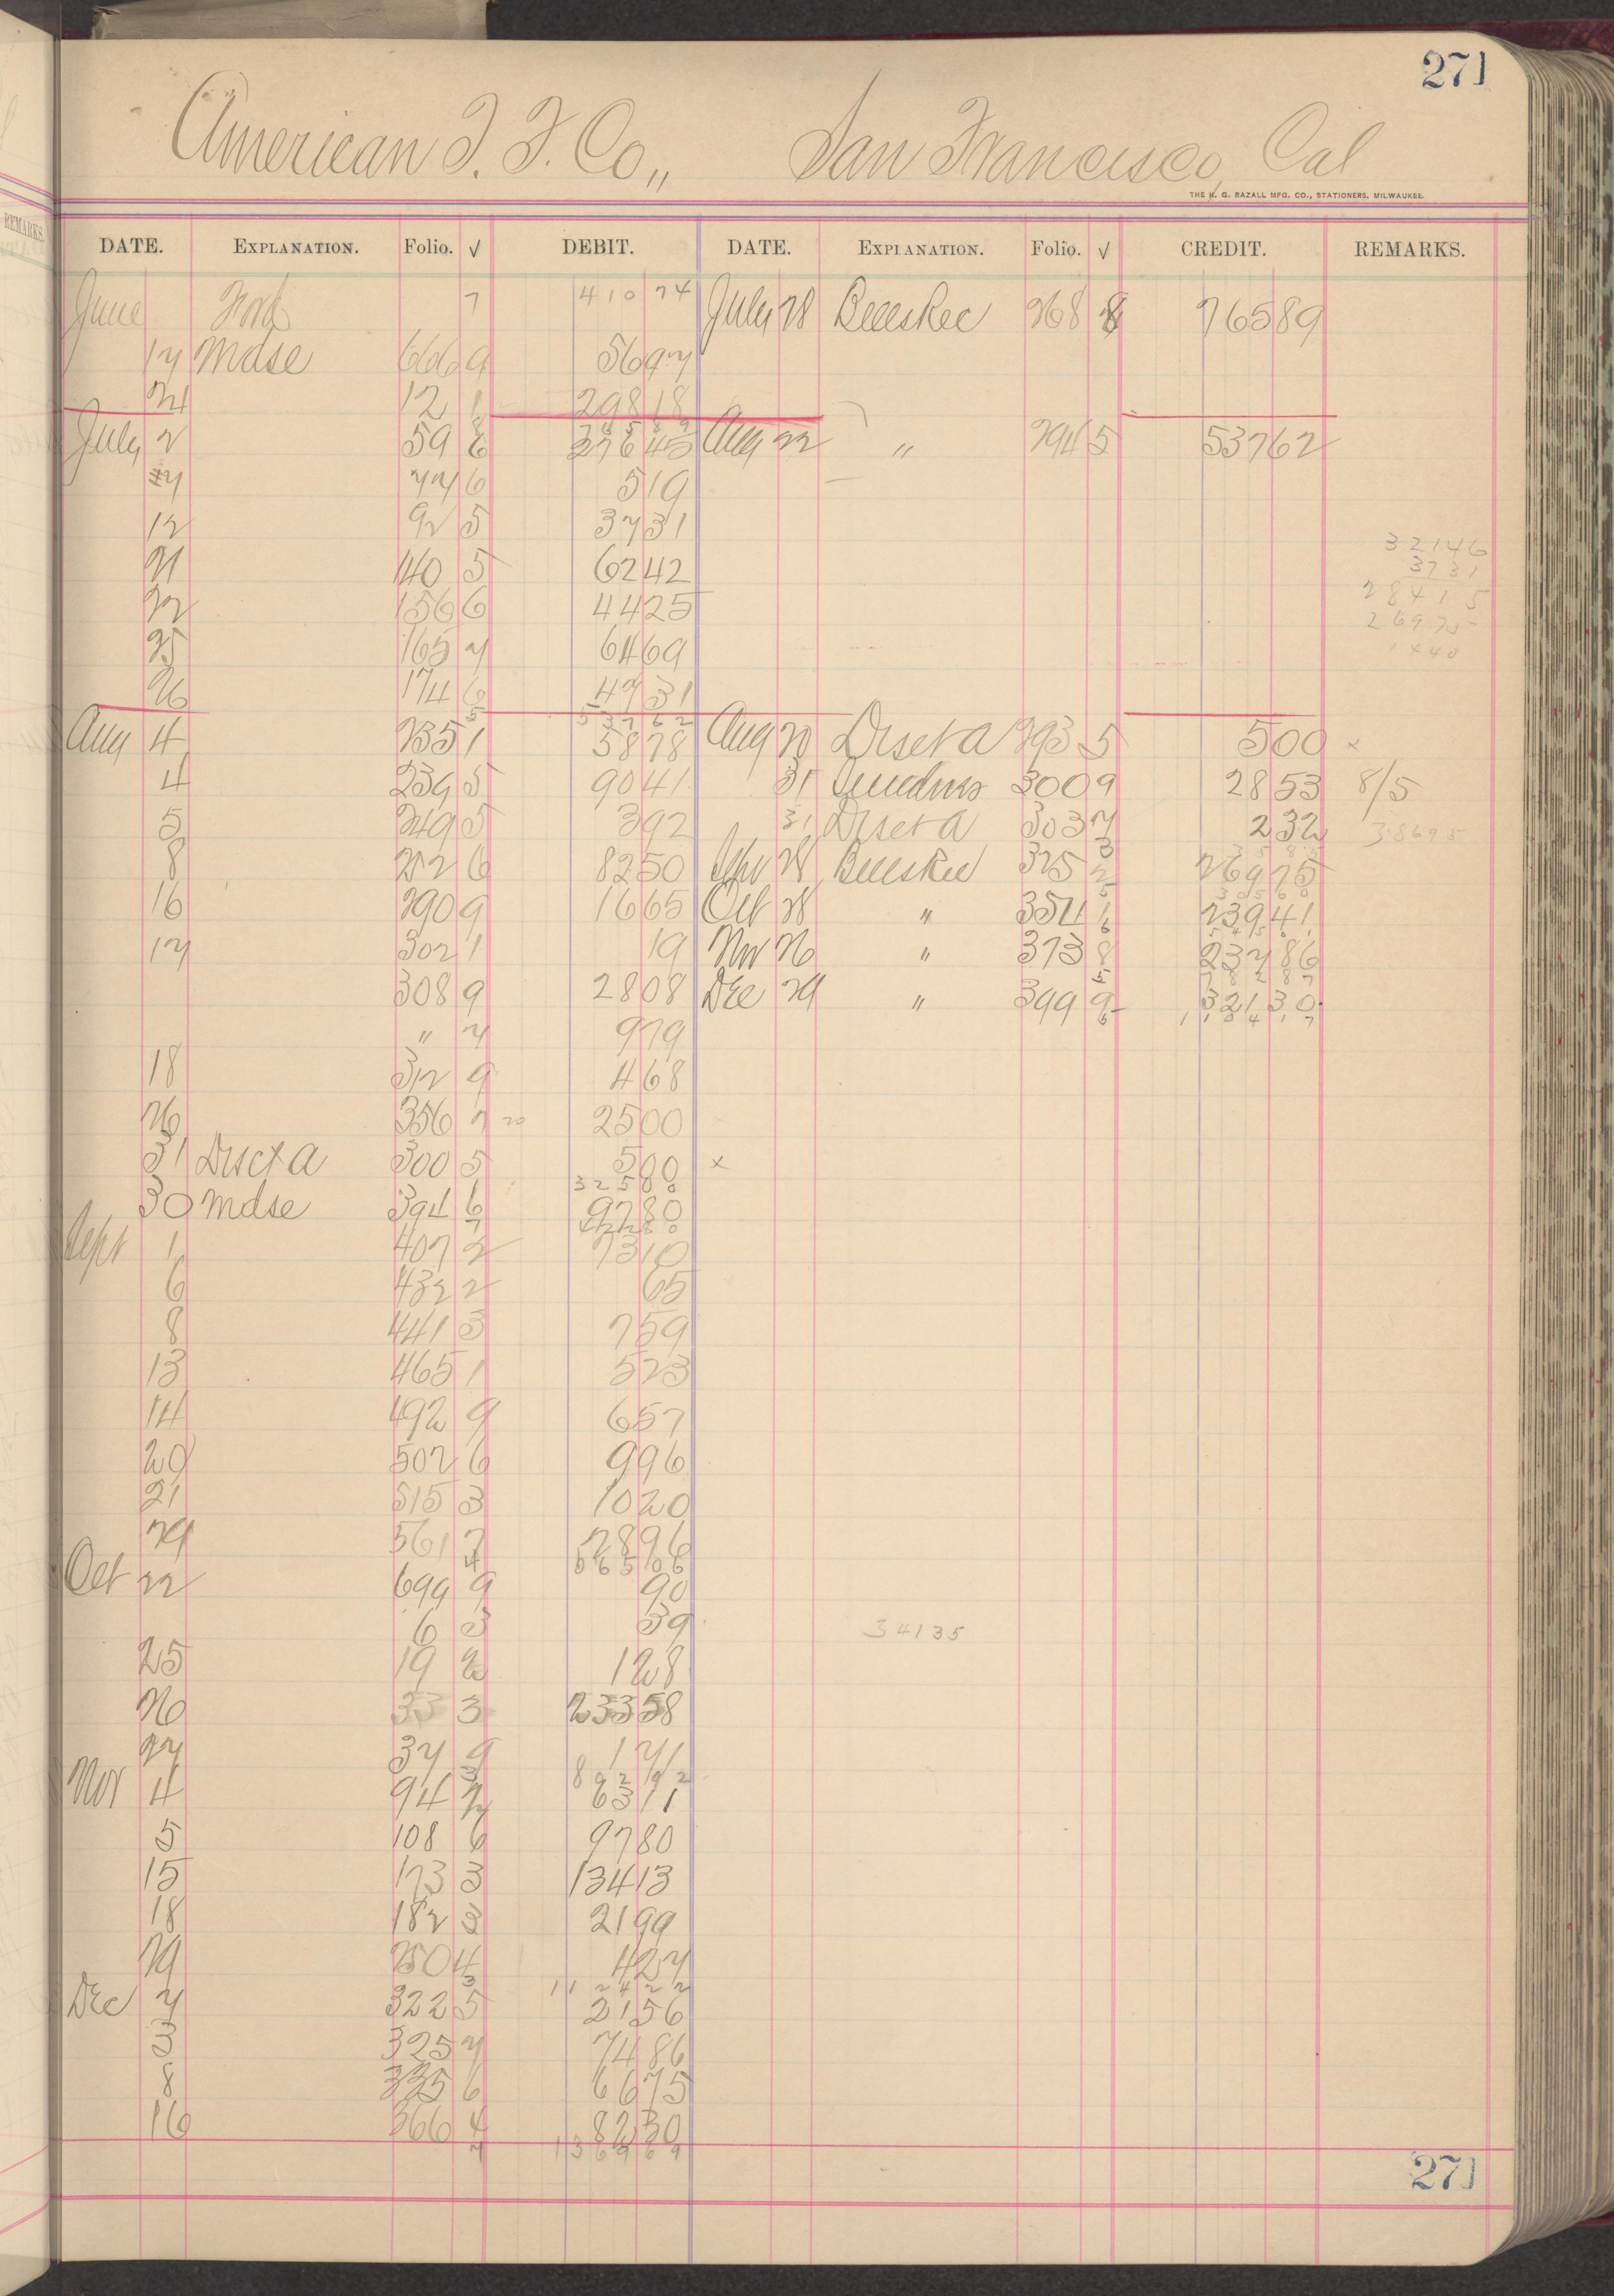 271
American T. F. Co,, San Francisco, Cal
THE H. G. RAZALL MFG. CO., STATIONERS, MILWAUKEE.
DATE. EXPLANATION. Folio. √ DEBIT. DATE. EXPLANATION. Folio. √ CREDIT. REMARKS.
June Ford 7 410 74 July 28 Bills Rec 268 8 765 89
17 Mdse 666 9 56 97
21 12 1 298 18
765 89
July 2 59 6 276 45 Aug 22 " 294 5 537 62
7 77 6 5 19
12 92 5 37 31
21 140 5 62 42 321 46
22 156 6 44 25 37 31
25 165 7 64 69 284 15
26 174 6 47 31 269 75
537 62
Aug 4 235 1 58 78 Aug 20 Disct a 293 5 5 00 x
4 239 5 90 41 31 Sundries 300 9 28 53 8/5
5 249 5 3 92 31 Disct a 303 7 2 32 386 95
8 252 6 82 50 Sept 28 Bills Rec 325 2 269 75
16 290 9 16 65 Oct 28 " 354 1 239 41
17 302 1 19 Nov 26 " 373 8 237 86
308 9 28 08 Dec 29 " 399 9 321 30
" 7 9 79
18 312 9 4 68
26 356 7 20 25 00
31 Disct a 300 5 5 00 x
325 80
30 Mdse 394 6 97 80
Sept 1 407 2 73 10
6 432 2 65
8 441 3 7 59
13 465 1 5 23
14 492 9 6 57
20 502 6 9 96
21 515 3 10 20
29 561 7 28 96
Oct 22 699 9 90
6 3 39 341 35
25 19 2 1 28
26 33 3 233 58
27 37 9 1 71
892 92
Nov 4 94 2 63 11
5 108 6 97 80
15 173 3 134 13
18 182 3 21 99
29 250 4 4 27
1124 22
Dec 7 322 5 21 56
3 325 7 74 86
8 335 6 66 75
16 366 4 82 30
1369 69
271